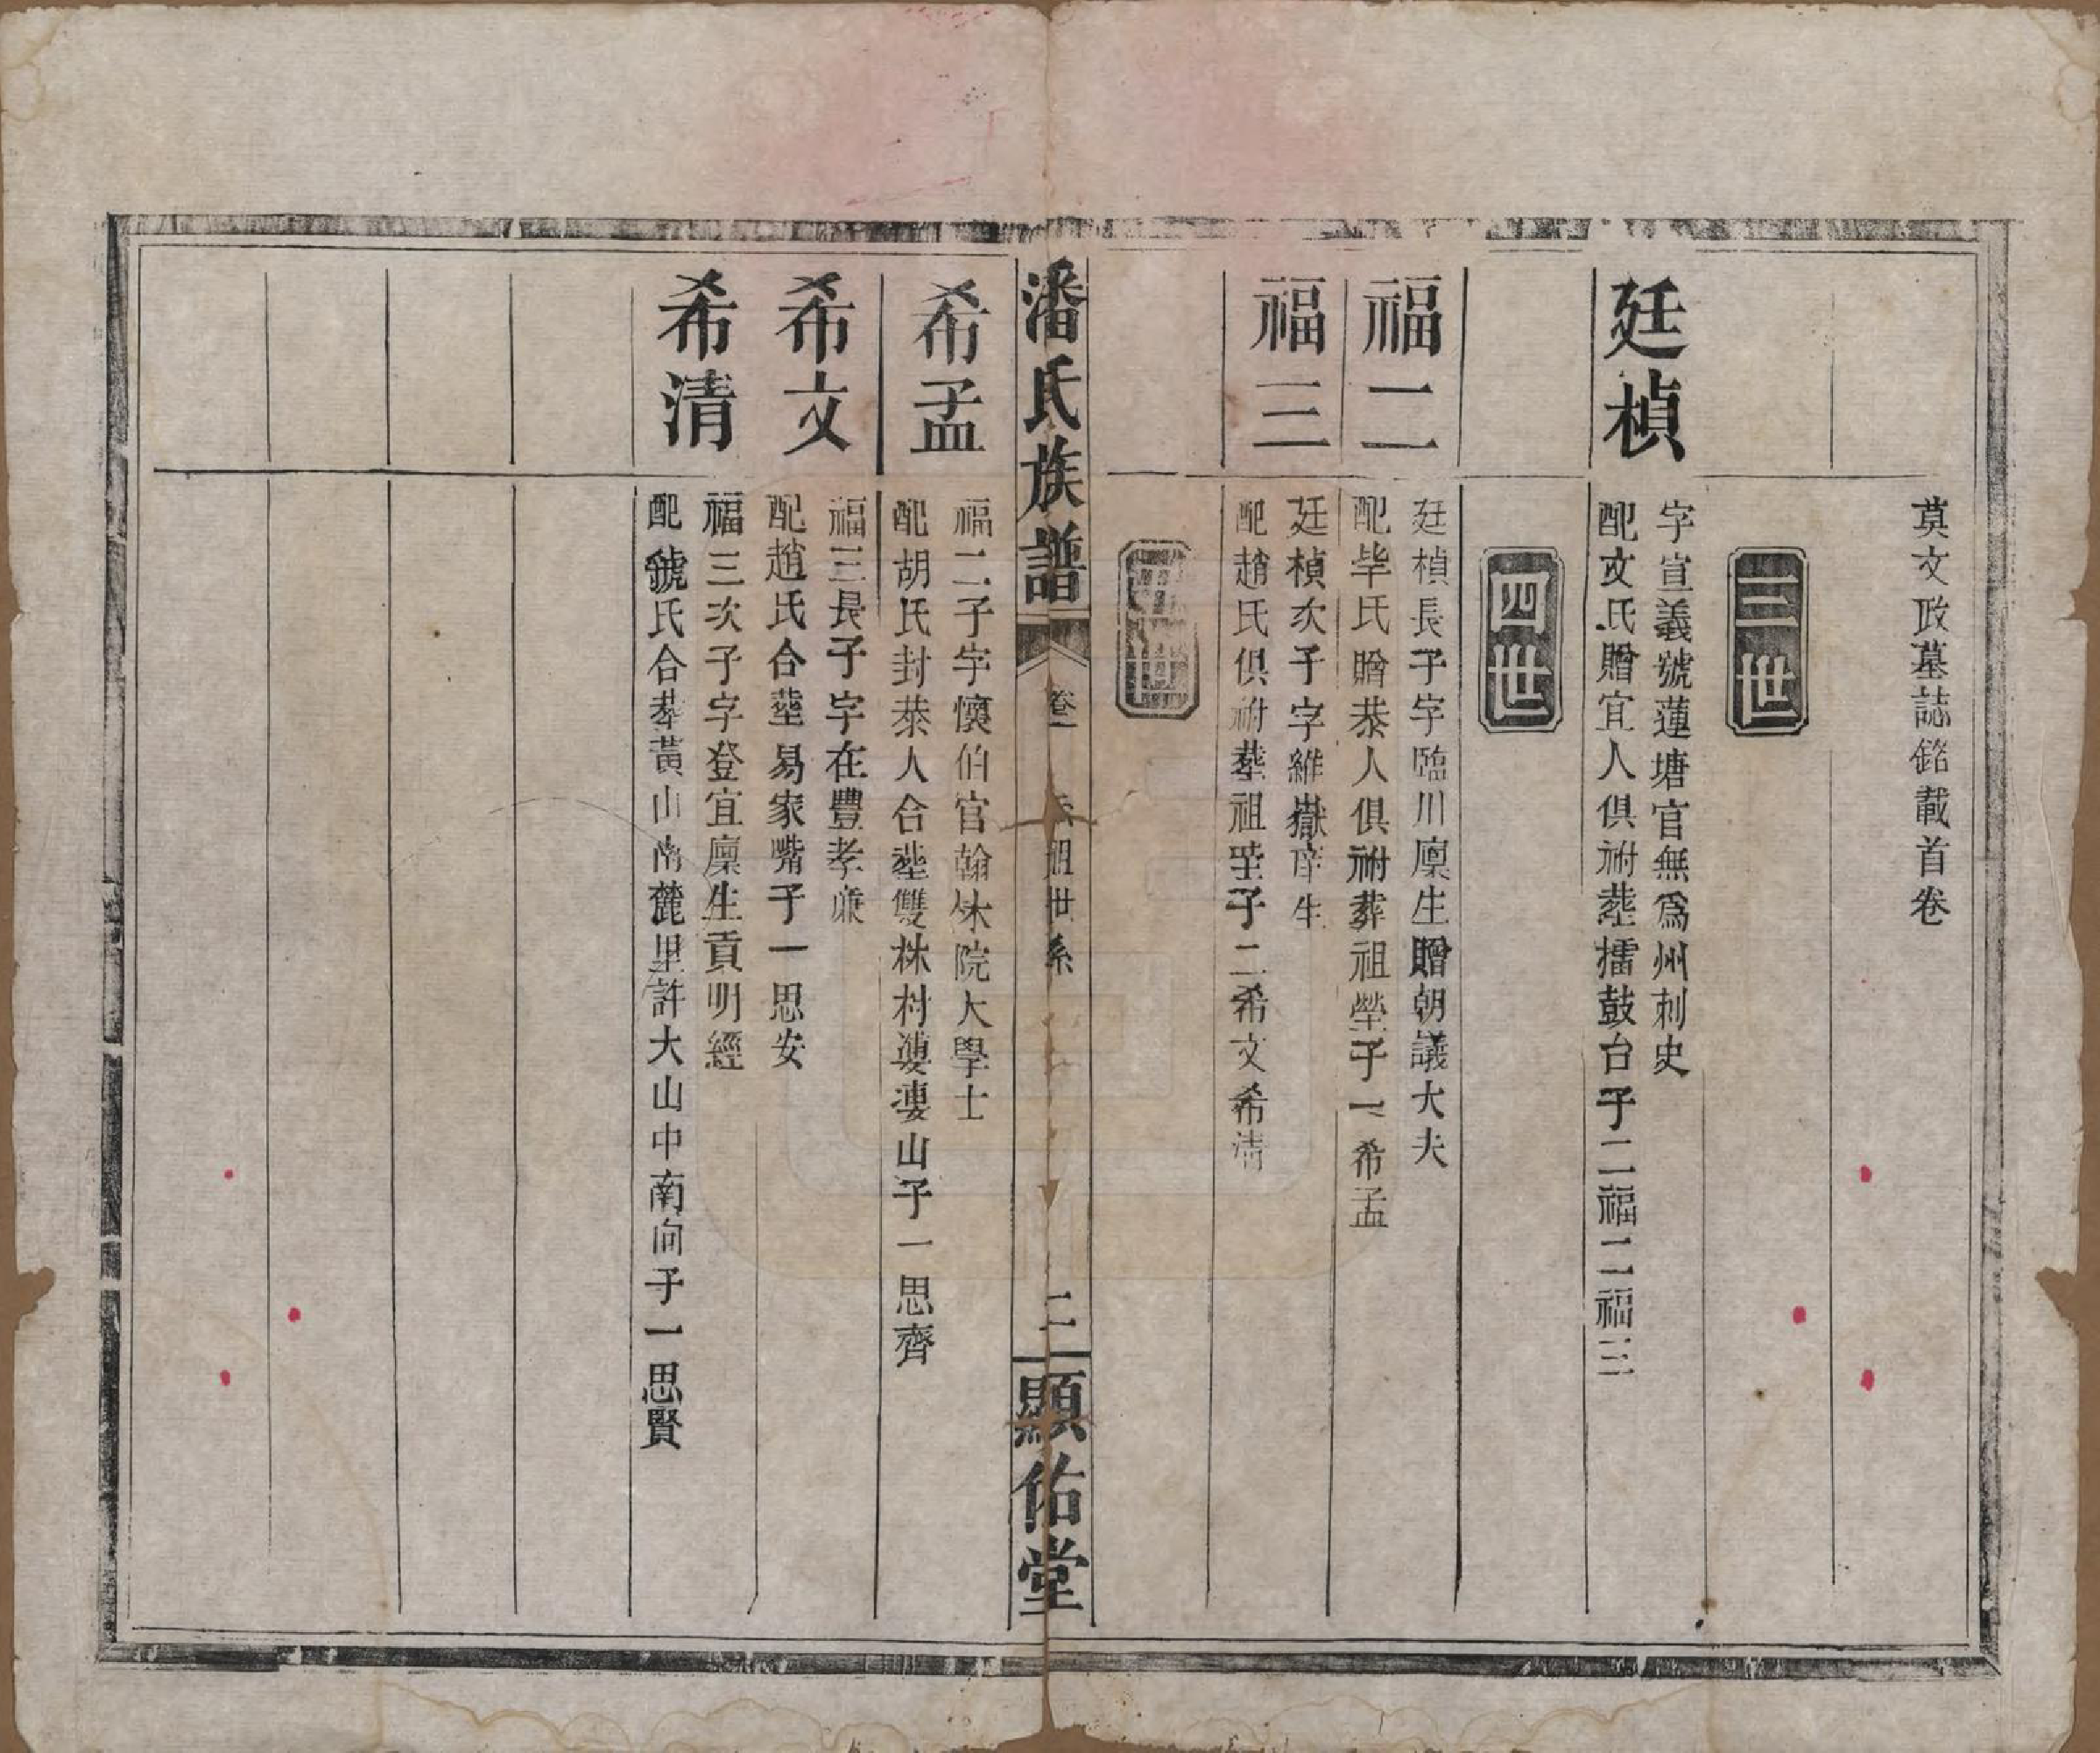 莫文政墓誌銘載首卷
三世
廷楨
字宣義號蓮塘官無爲州刺史
配文氏贈宜人俱祔塟擂鼓台子二福二福三
四世
福二
廷楨長子字臨川廪生贈朝議大夫
配毕氏贈恭人俱祔葬祖塋子一希孟
福三
廷楨次子字維嶽庠生
配趙氏俱祔塟祖塋子二希文希清
五世
潘氏族譜
卷一
祖世系
二
顯佑堂
希孟
福二子字懷伯官翰林院大學士
配胡氏封恭人合塟雙株村山子一思齊
希文
福三長子字在豐孝亷
配趙氏合塟易家嘴子一思安
希清
福三次子字登宜廪生貢明經
配虢氏合塟黃山南麓里許大山中南向子一思賢